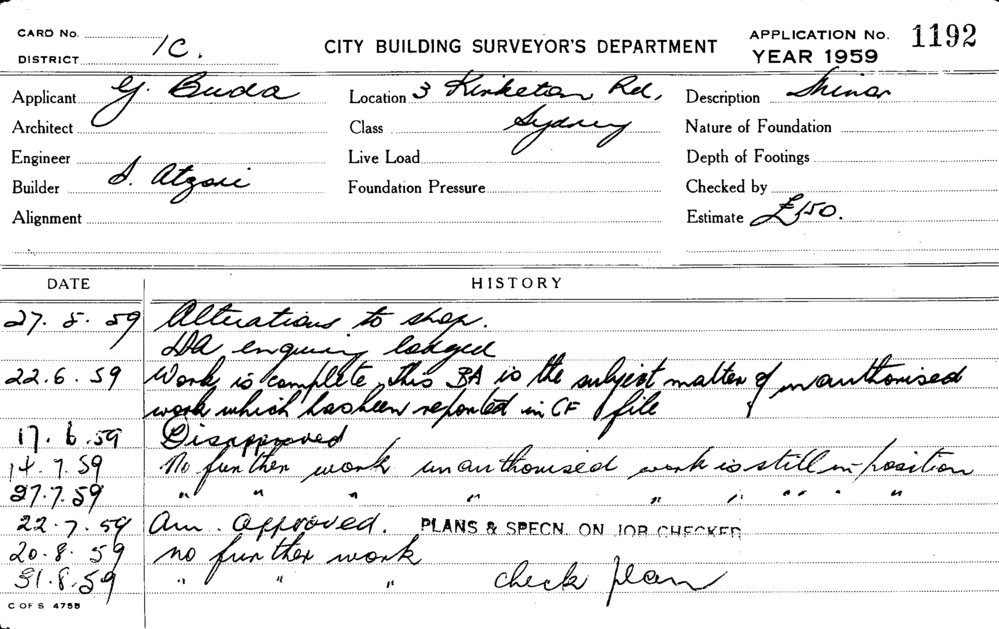 CARD No.
DISTRICT 1C.
CITY BUILDING SURVEYOR'S DEPARTMENT
APPLICATION No. 1192
YEAR 1959
Applicant G. Buda
Location 3 Kirketon Rd,
Description Minor
Architect
Class Sydney
Nature of Foundation
Engineer
Live Load
Depth of Footings
Builder S. Atzori
Foundation Pressure
Checked by
Alignment
Estimate £150.
DATE HISTORY
27. 5. 59 Alterations to shop.
DA enquiry lodged
22.6.59 Work is complete, this BA is the subject matter of unauthorised
work which has been reported in CF file
17.6.59 Disapproved
14.7.59 No further work unauthorised work is still in position
27.7.59 " " " " " " " " " "
22.7.59 Am. approved. PLANS & SPECN. ON JOB CHECKED
20.8.59 no further work
31.8.59 " " " check plan
C OF S 475B